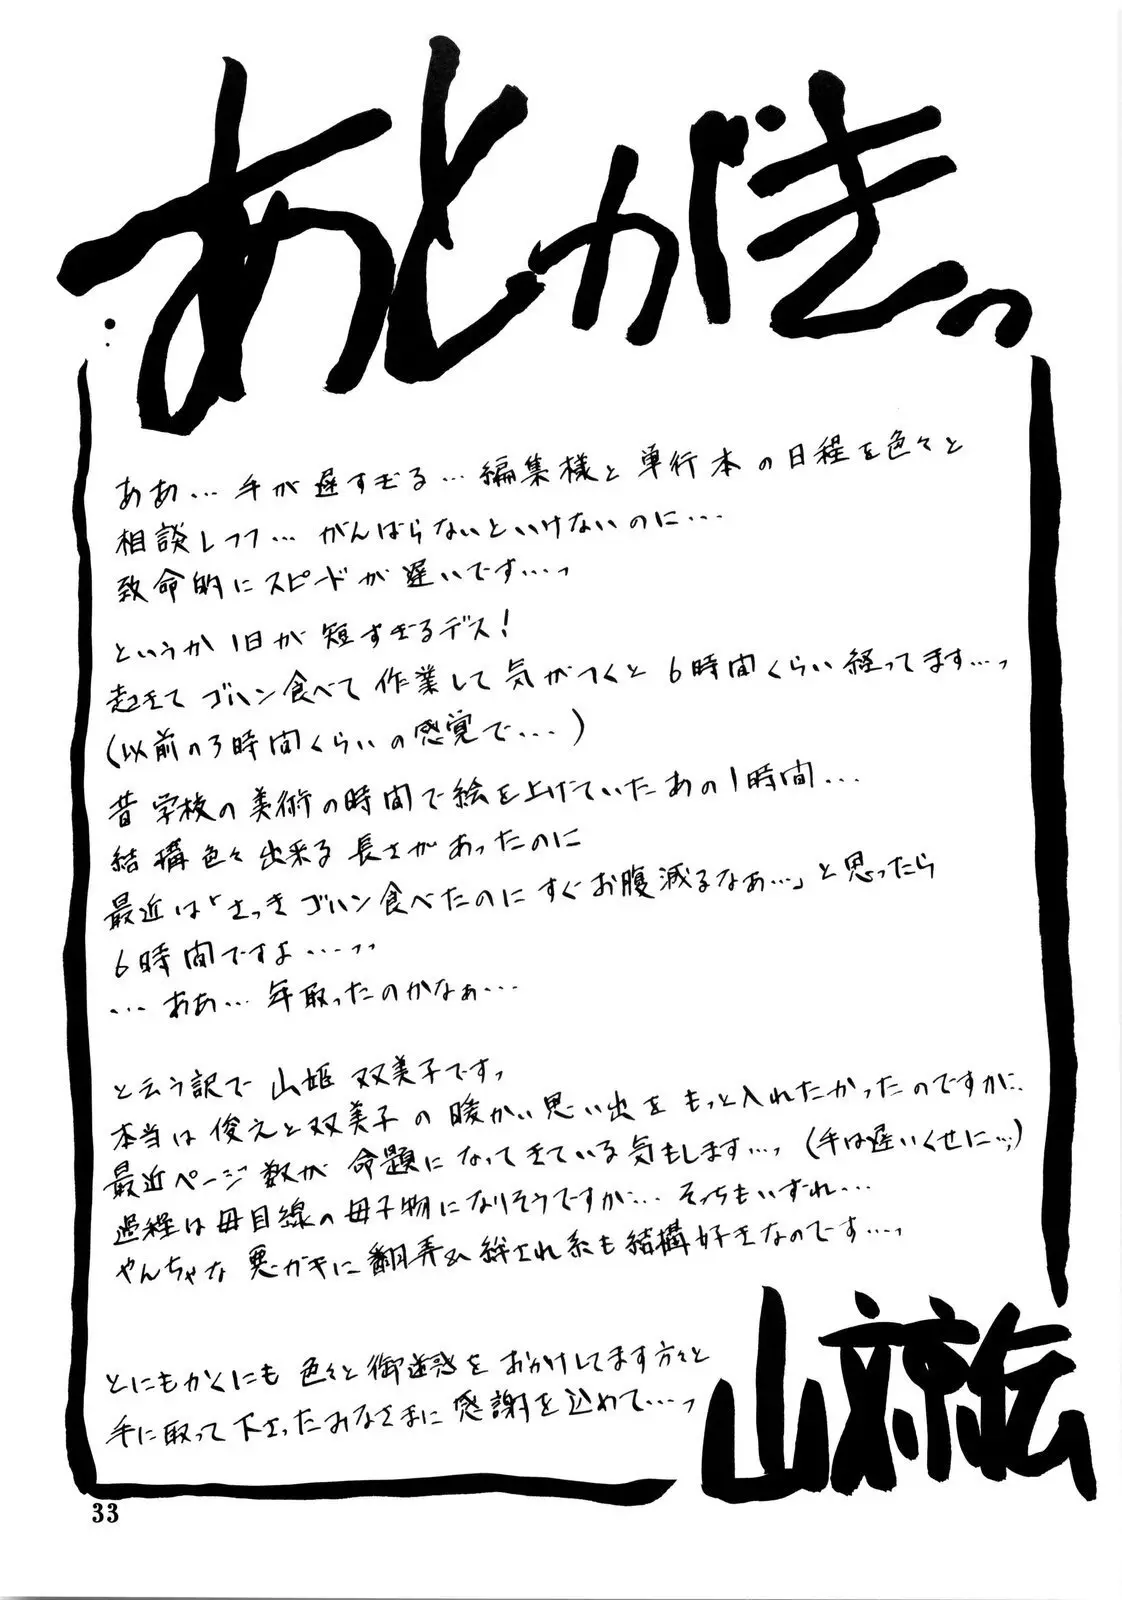 あとがきっ
ああ…手が遅すぎる…編集様と単行本の日程を色々と
相談しつつ…がんばらないといけないのに…
致命的にスピードが遅いです…っ
というか1日が短すぎるデス!
起きてゴハン食べて作業して気がつくと6時間くらい経ってます…っ
(以前の3時間くらいの感覚で…)
昔学校の美術の時間で絵を上げていたあの1時間…
結構色々出来る長さがあったのに
最近は「さっきゴハン食べたのにすぐお腹減るなぁ…」と思ったら
6時間ですよ…っっ
…ああ…年取ったのかなぁ…
と云う訳で山姫双美子ですっ
本当は俊之と双美子の暖かい思い出をもっと入れたかったのですが、
最近ページ数が命題になってきている気もします…っ(手は遅いくせに…)
過程は母目線の母子物になりそうですが…そっちもいずれ…
やんちゃな悪ガキに翻弄&絆され系も結構好きなのです…っ
とにもかくにも色々と御迷惑をおかけしてます方々と
手に取って下さったみなさまに感謝を込めて…っ
山文京伝
33